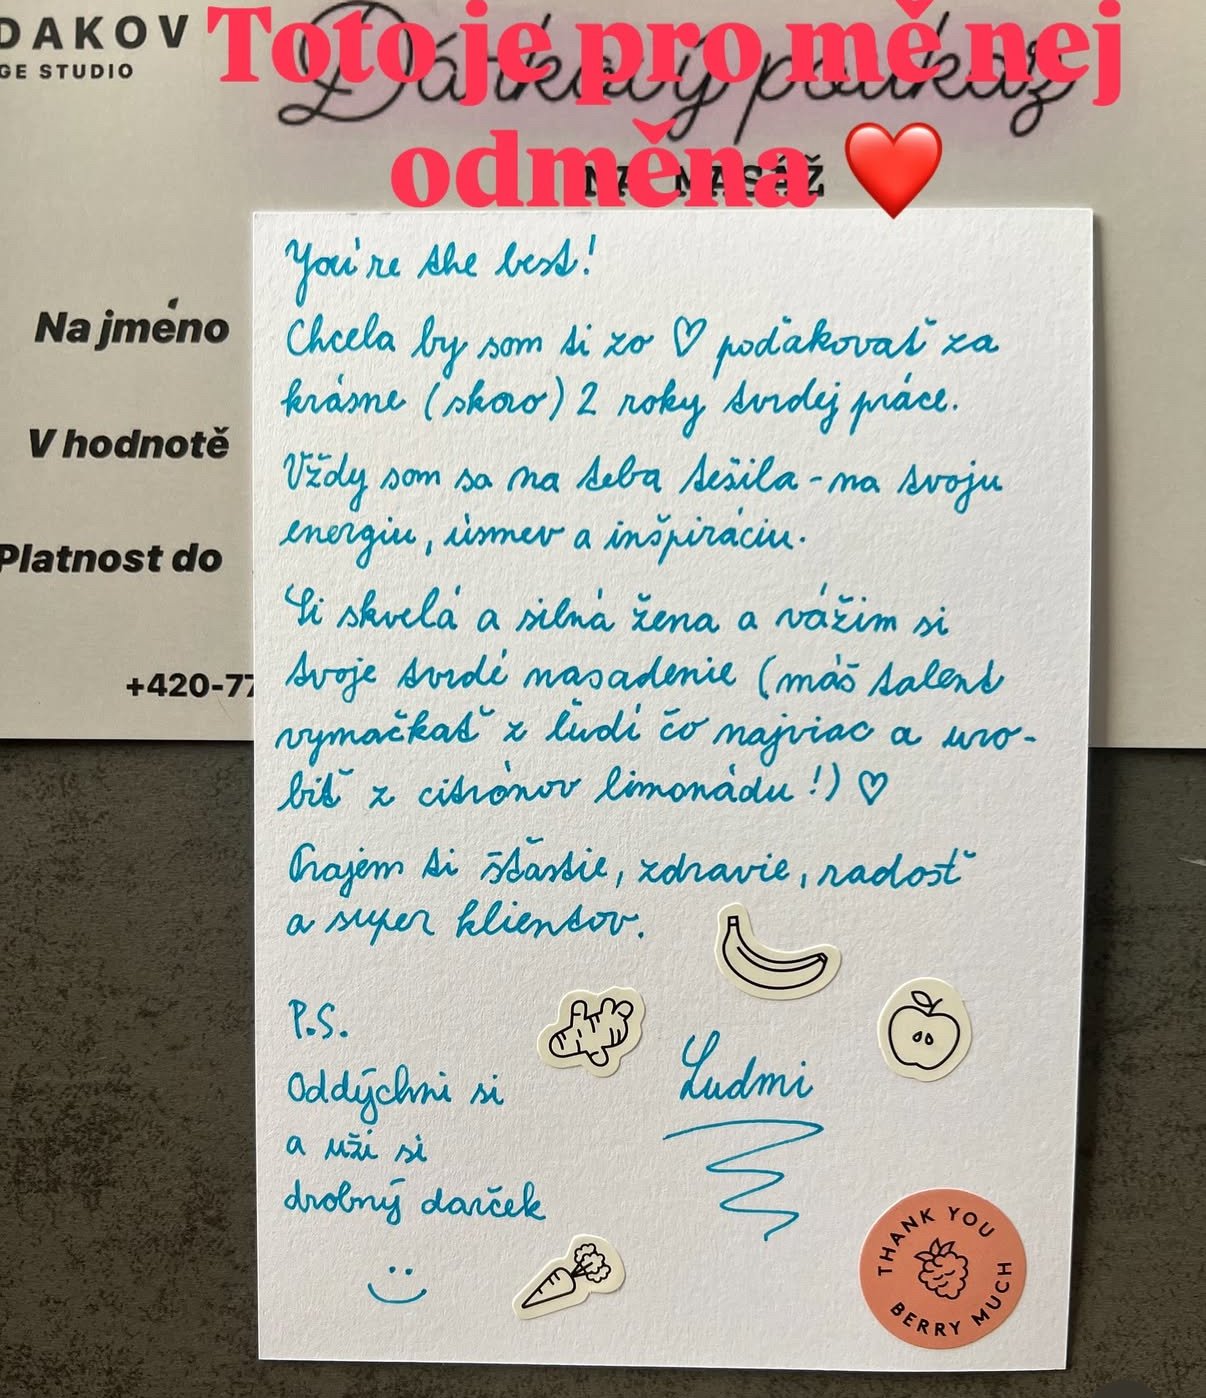 DAKOV
GE STUDIO
Dárkový poukaz
NA MASÁŽ
Toto je pro mě nej
odměna ❤️
Na jméno
V hodnotě
Platnost do
+420-77
You're the best!
Chcela by som ti zo ♡ poďakovať za
krásne (skoro) 2 roky tvrdej práce.
Vždy som sa na teba tešila - na tvoju
energiu, úsmev a inšpiráciu.
Si skvelá a silná žena a vážim si
tvoje tvrdé nasadenie (máš talent
vymačkať z ľudí čo najviac a uro-
biť z citrónov limonádu!) ♡
Prajem ti šťastie, zdravie, radosť
a super klientov.
P.S.
Oddýchni si
a uži si
drobný darček
Ludmi
THANK YOU
BERRY MUCH